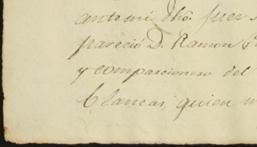 antemi dho. Juez
pareció D. Ramon
y comparecieron del
Clancas, quien